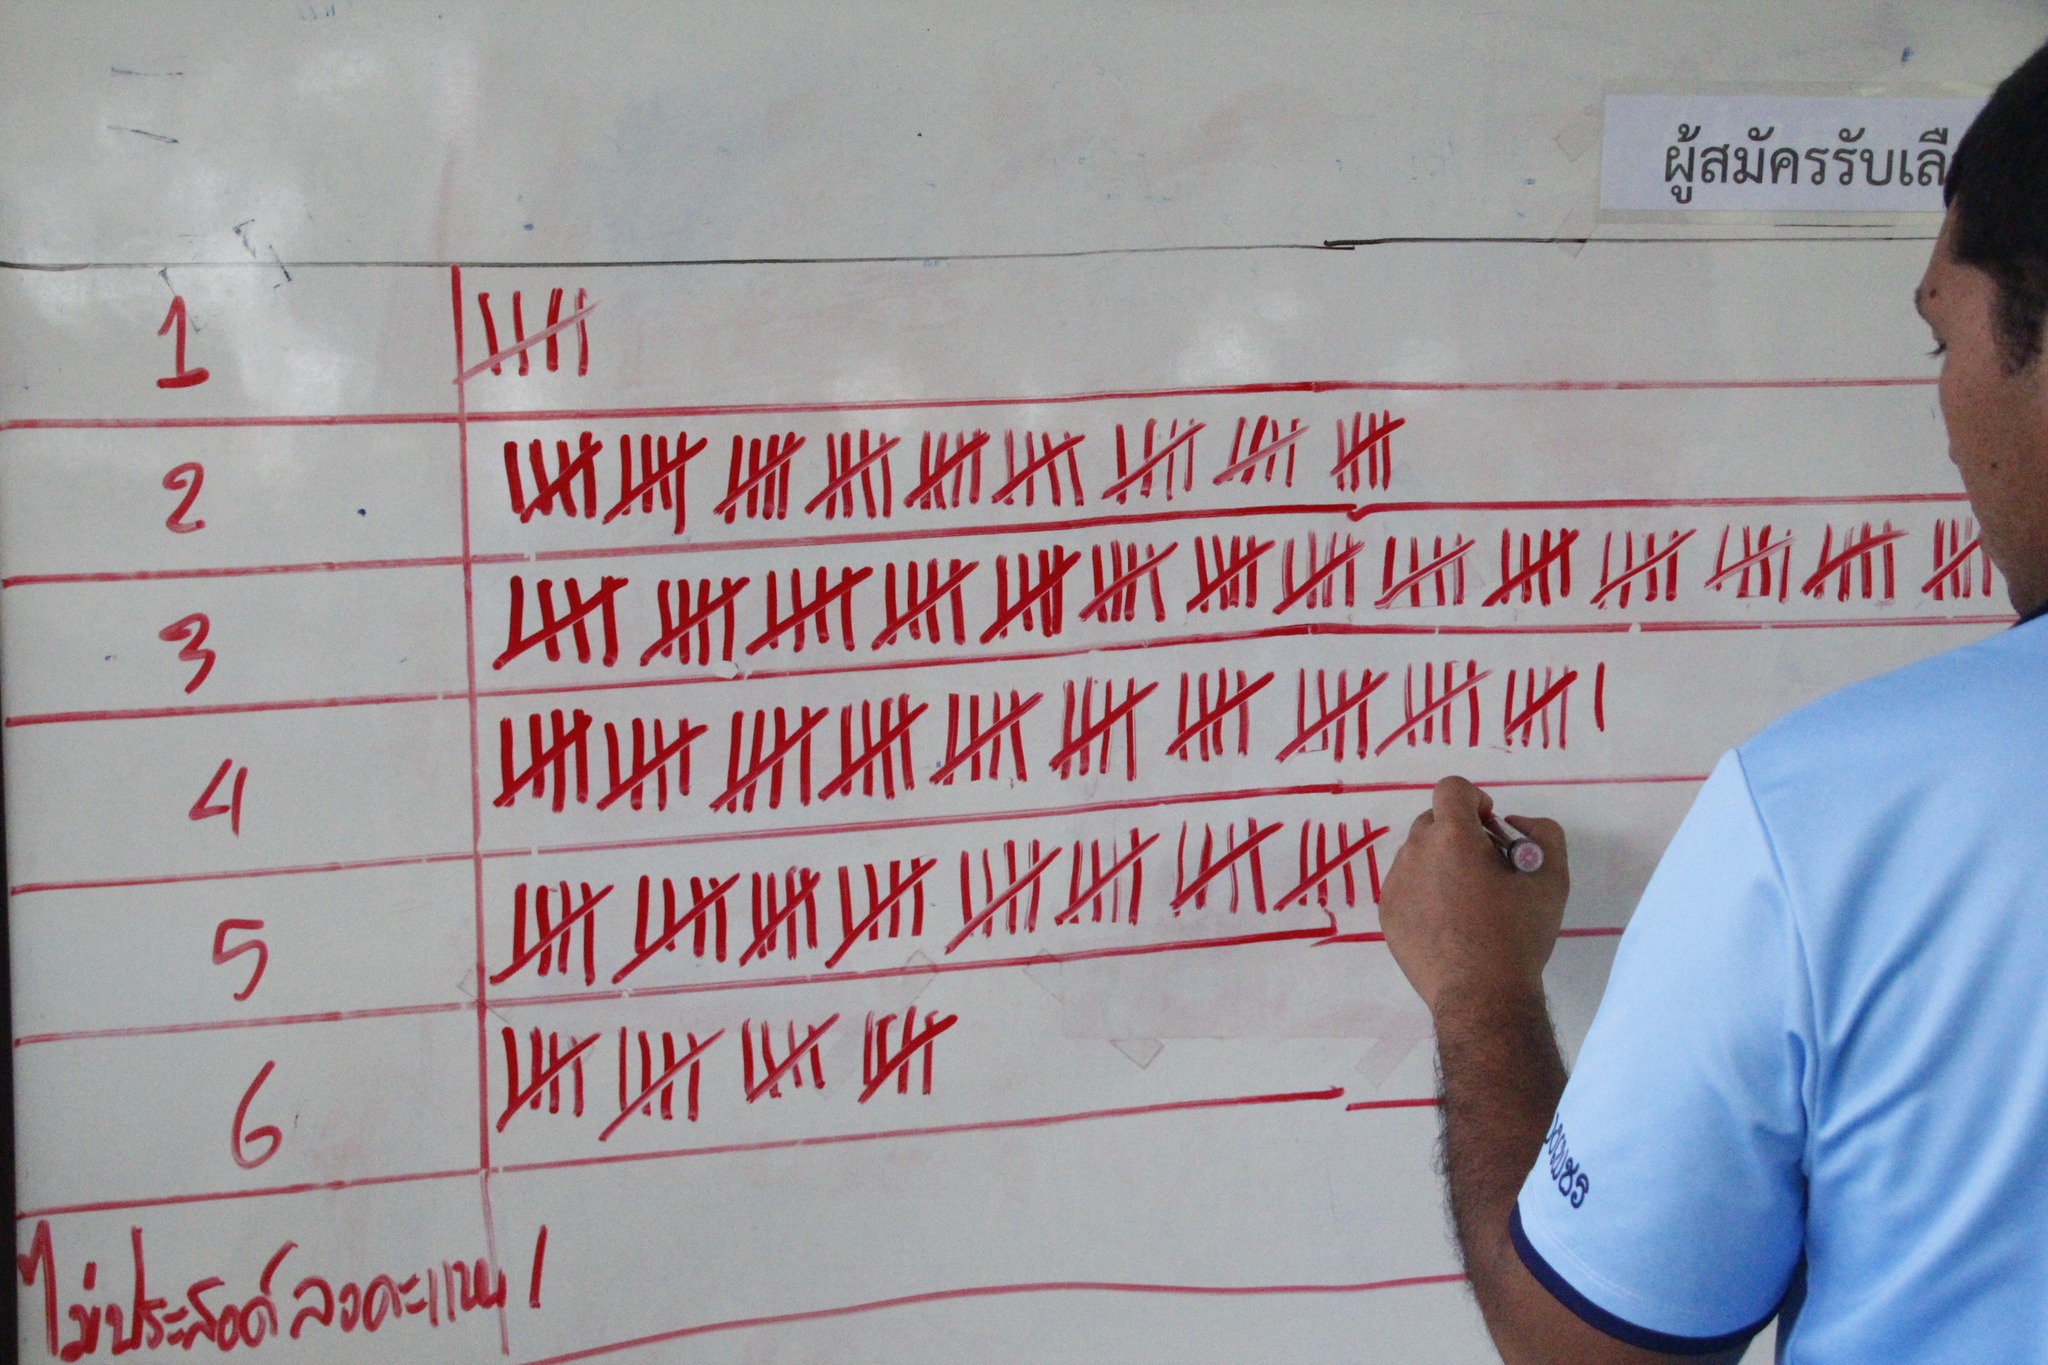 ผู้สมัครรับเลื
1
2
3
4
5
6
ไม่ประสงค์ลงคะแนน